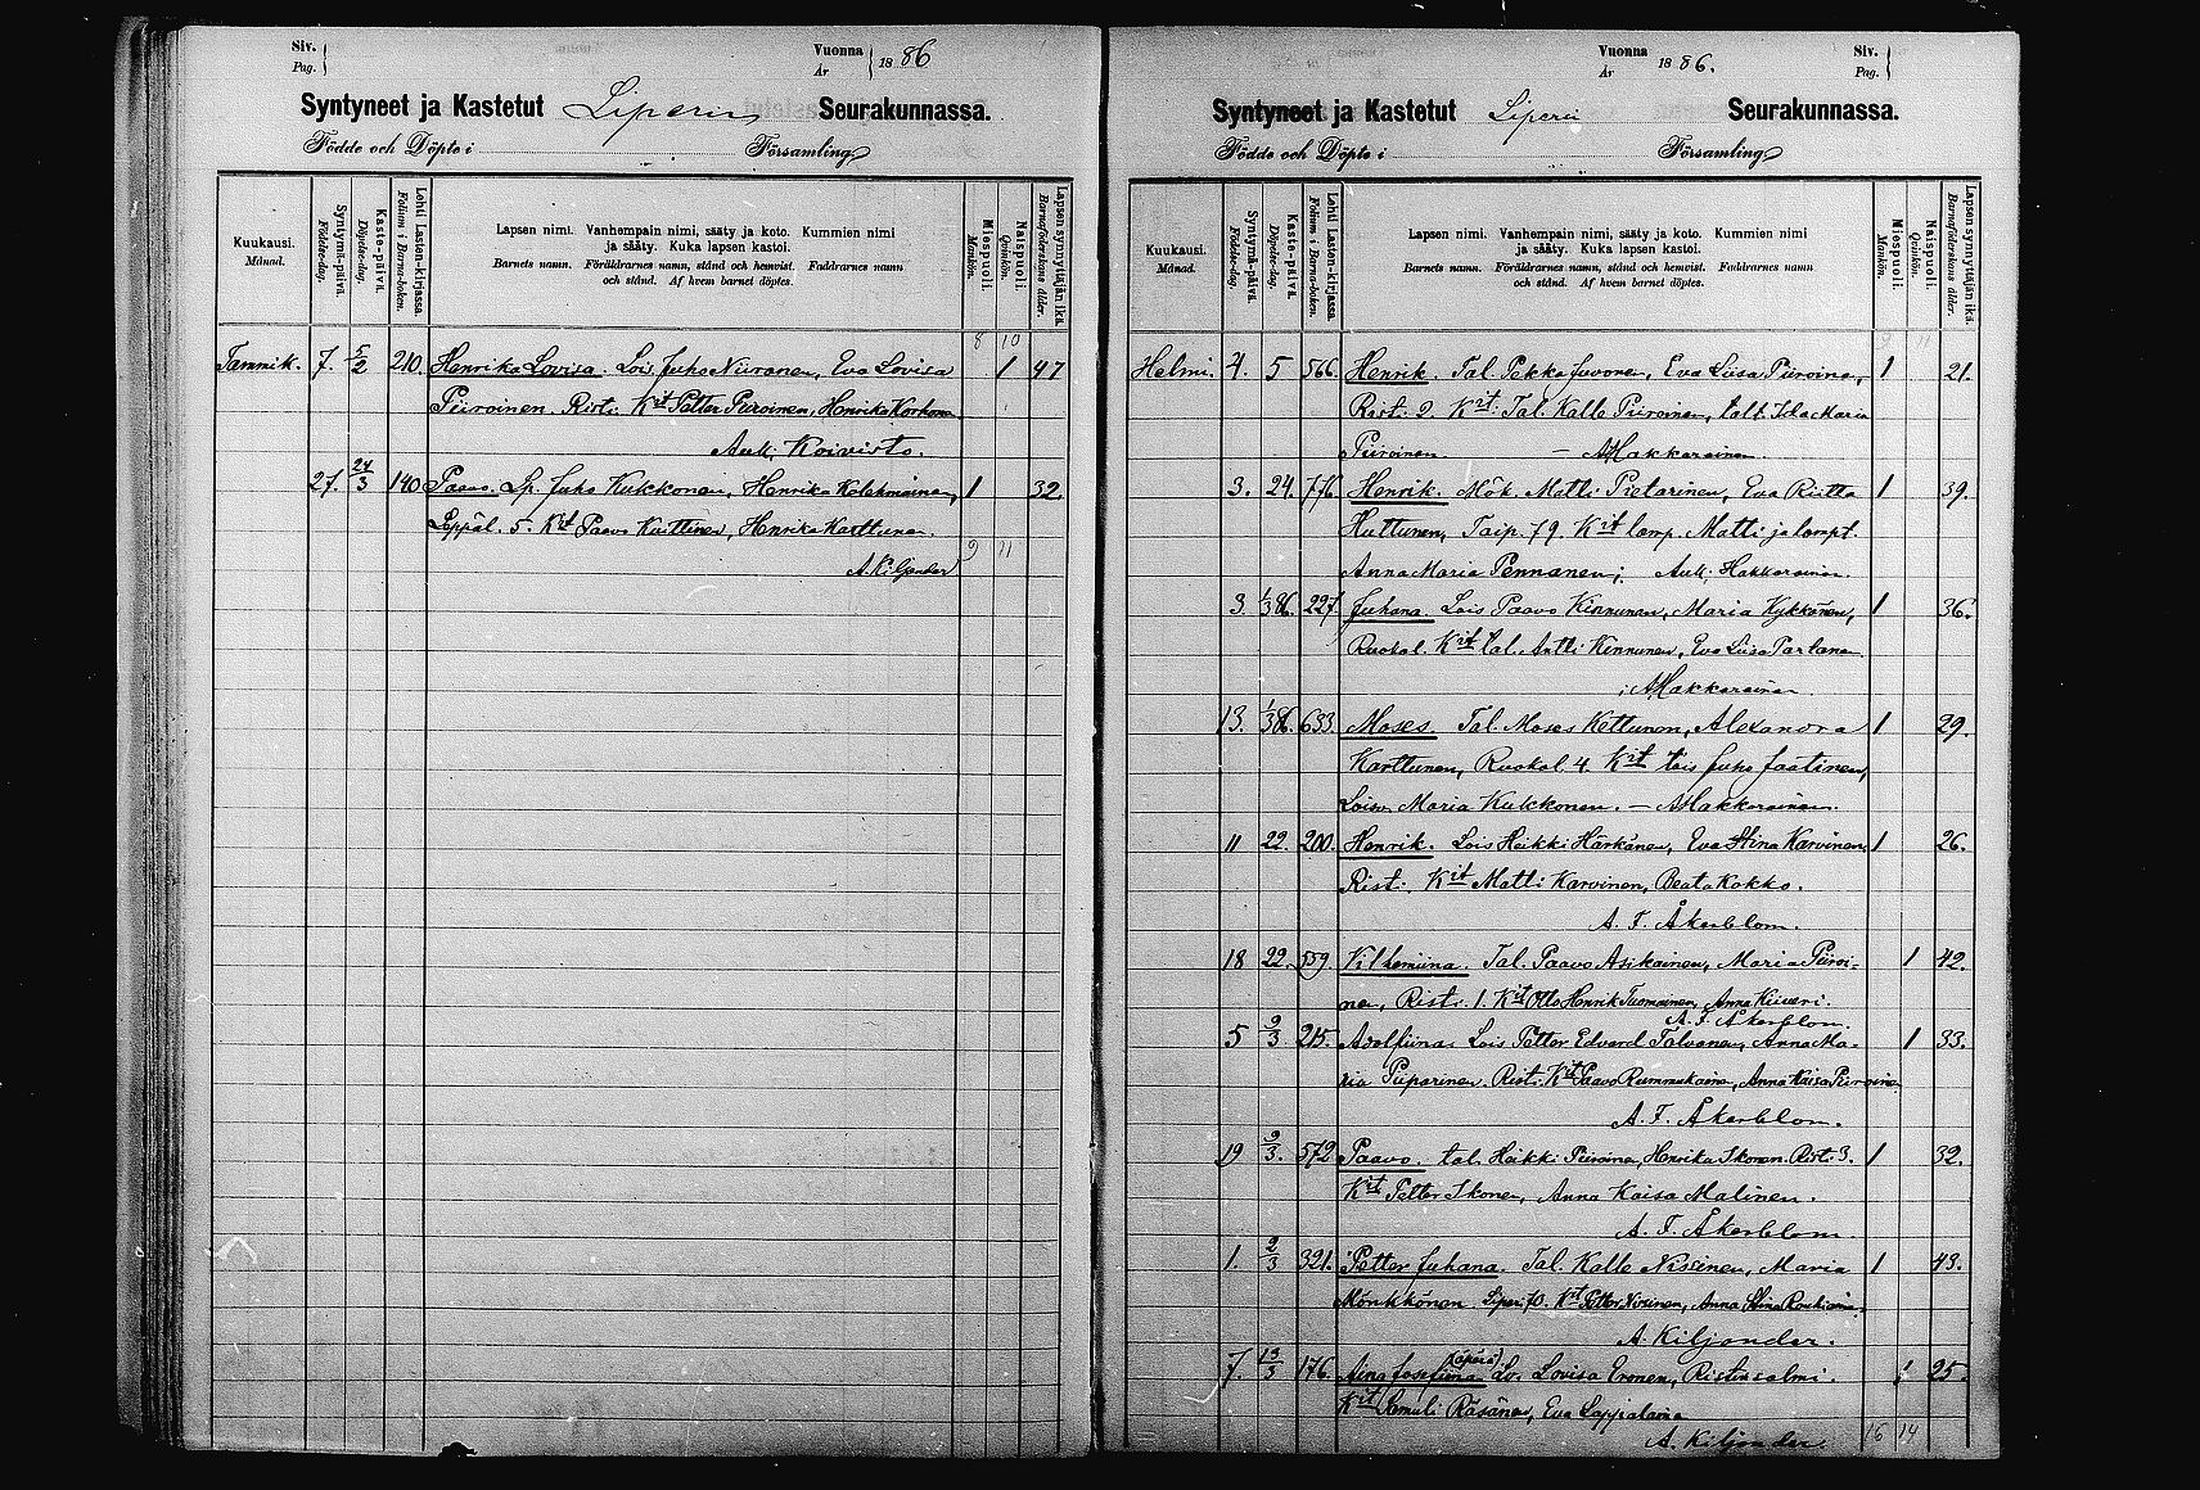 Siv.
Pag.
Vuonna
År
18 86
Syntyneet ja Kastetut Liperin Seurakunnassa.
Födde och Döpte i Församling
Kuukausi.
Månad.
Syntymä-päivä.
Födelse-dag.
Kaste-päivä.
Döpelse-dag.
Lehti Lasten-kirjassa.
Folium i Barna-boken.
Lapsen nimi. Vanhempain nimi, sääty ja koto. Kummien nimi
ja sääty. Kuka lapsen kastoi.
Barnets namn. Föräldrarnes namn, stånd och hemvist. Faddrarnes namn
och stånd. Af hvem barnet döptes.
Miespuoli.
Mankön.
Naispuoli.
Qvinkön.
Lapsen synnyttäjän ikä.
Barnaföderskans ålder.
8 10
Tammik. 7. 5/2 210. Henrika Lovisa. Lois Juho Niiranen, Eva Lovisa 1 47
Piiroinen. Risti. Kit Petter Piiroinen, Henrika Korhonen
Auk; Koivisto.
27. 24/3 140 Paavo. Lp. Juho Kukkonen, Henrika Kolehmainen, 1 32.
Leppäl. 5. Kit Paavo Kuittinen, Henrika Karttunen.
9 11
A. Kiljander
Vuonna
År
18 86.
Siv.
Pag.
Syntyneet ja Kastetut Liperi Seurakunnassa.
Födde och Döpte i Församling
Kuukausi.
Månad.
Syntymä-päivä.
Födelse-dag.
Kaste-päivä.
Döpelse-dag.
Lehti Lasten-kirjassa.
Folium i Barna-boken.
Lapsen nimi. Vanhempain nimi, sääty ja koto. Kummien nimi
ja sääty. Kuka lapsen kastoi.
Barnets namn. Föräldrarnes namn, stånd och hemvist. Faddrarnes namn
och stånd. Af hvem barnet döptes.
Miespuoli.
Mankön.
Naispuoli.
Qvinkön.
Lapsen synnyttäjän ikä.
Barnaföderskans ålder.
9 11
Helmi. 4. 5 566. Henrik. Tal. Pekka Juvonen, Eva Liisa Piiroinen, 1 21.
Risti. 2. Kit: Tal. Kalle Piiroinen, talt. Ida Maria
Piiroinen. – A Hakkarainen.
3. 24. 776 Henrik. Mök. Matti Pietarinen, Eva Riitta 1 39.
Huttunen, Taip. 79. Kit lamp. Matti ja lampt.
Anna Maria Pennanen; Auk; Hakkarainen.
3. 1/3 86. 227. Juhana. Lois Paavo Kinnunen, Maria Kykkänen, 1 36.
Ruokol. Kit tal. Antti Kinnunen, Eva Liisa Partanen.
; A Hakkarainen.
13. 1/3 86. 633. Moses. Tal. Moses Kettunen, Alexandra 1 29.
Karttunen, Ruokol. 4. Kit lois Juho Jaatinen,
Loisv. Maria Kukkonen. – A Hakkarainen.
11 22. 200. Henrik. Lois Heikki Härkänen, Eva Stina Karvinen, 1 26.
Risti. Kit Matti Karvinen, Beata Kokko.
A. F. Åkerblom.
18 22. 559. Vilhemiina. Tal. Paavo Asikainen, Maria Piiroi= 1 42.
nen, Risti. 1. Kit Otto Henrik Tuomainen, Anna Kiiveri.
A. F. Åkerblom.
5 9/3 215. Adolfiina. Lois Petter Edvard Talvanen, Anna Ma- 1 33.
ria Piiparinen. Risti. Kit Paavo Rummukainen, Anna Kaisa Piiroinen
A. F. Åkerblom.
19 9/3. 572 Paavo. tal. Heikki Piiroinen, Henrika Ikonen. Risti. 3. 1 32.
Kit Petter Ikonen, Anna Kaisa Malinen.
A. F. Åkerblom.
1. 2/3 321. Petter Juhana. Tal. Kalle Nissinen, Maria 1 43.
Mönkkönen. Liperi 70. Kit Petter Nissinen, Anna Stina Roukiainen
A. Kiljander.
7. 13/3 176. Aina Josefiina (äpärä) Lo. Lovisa Eronen, Ristinsalmi. 1 25.
Kit Samuli Räsänen, Eva Lappalainen
A. Kiljander. 16 14